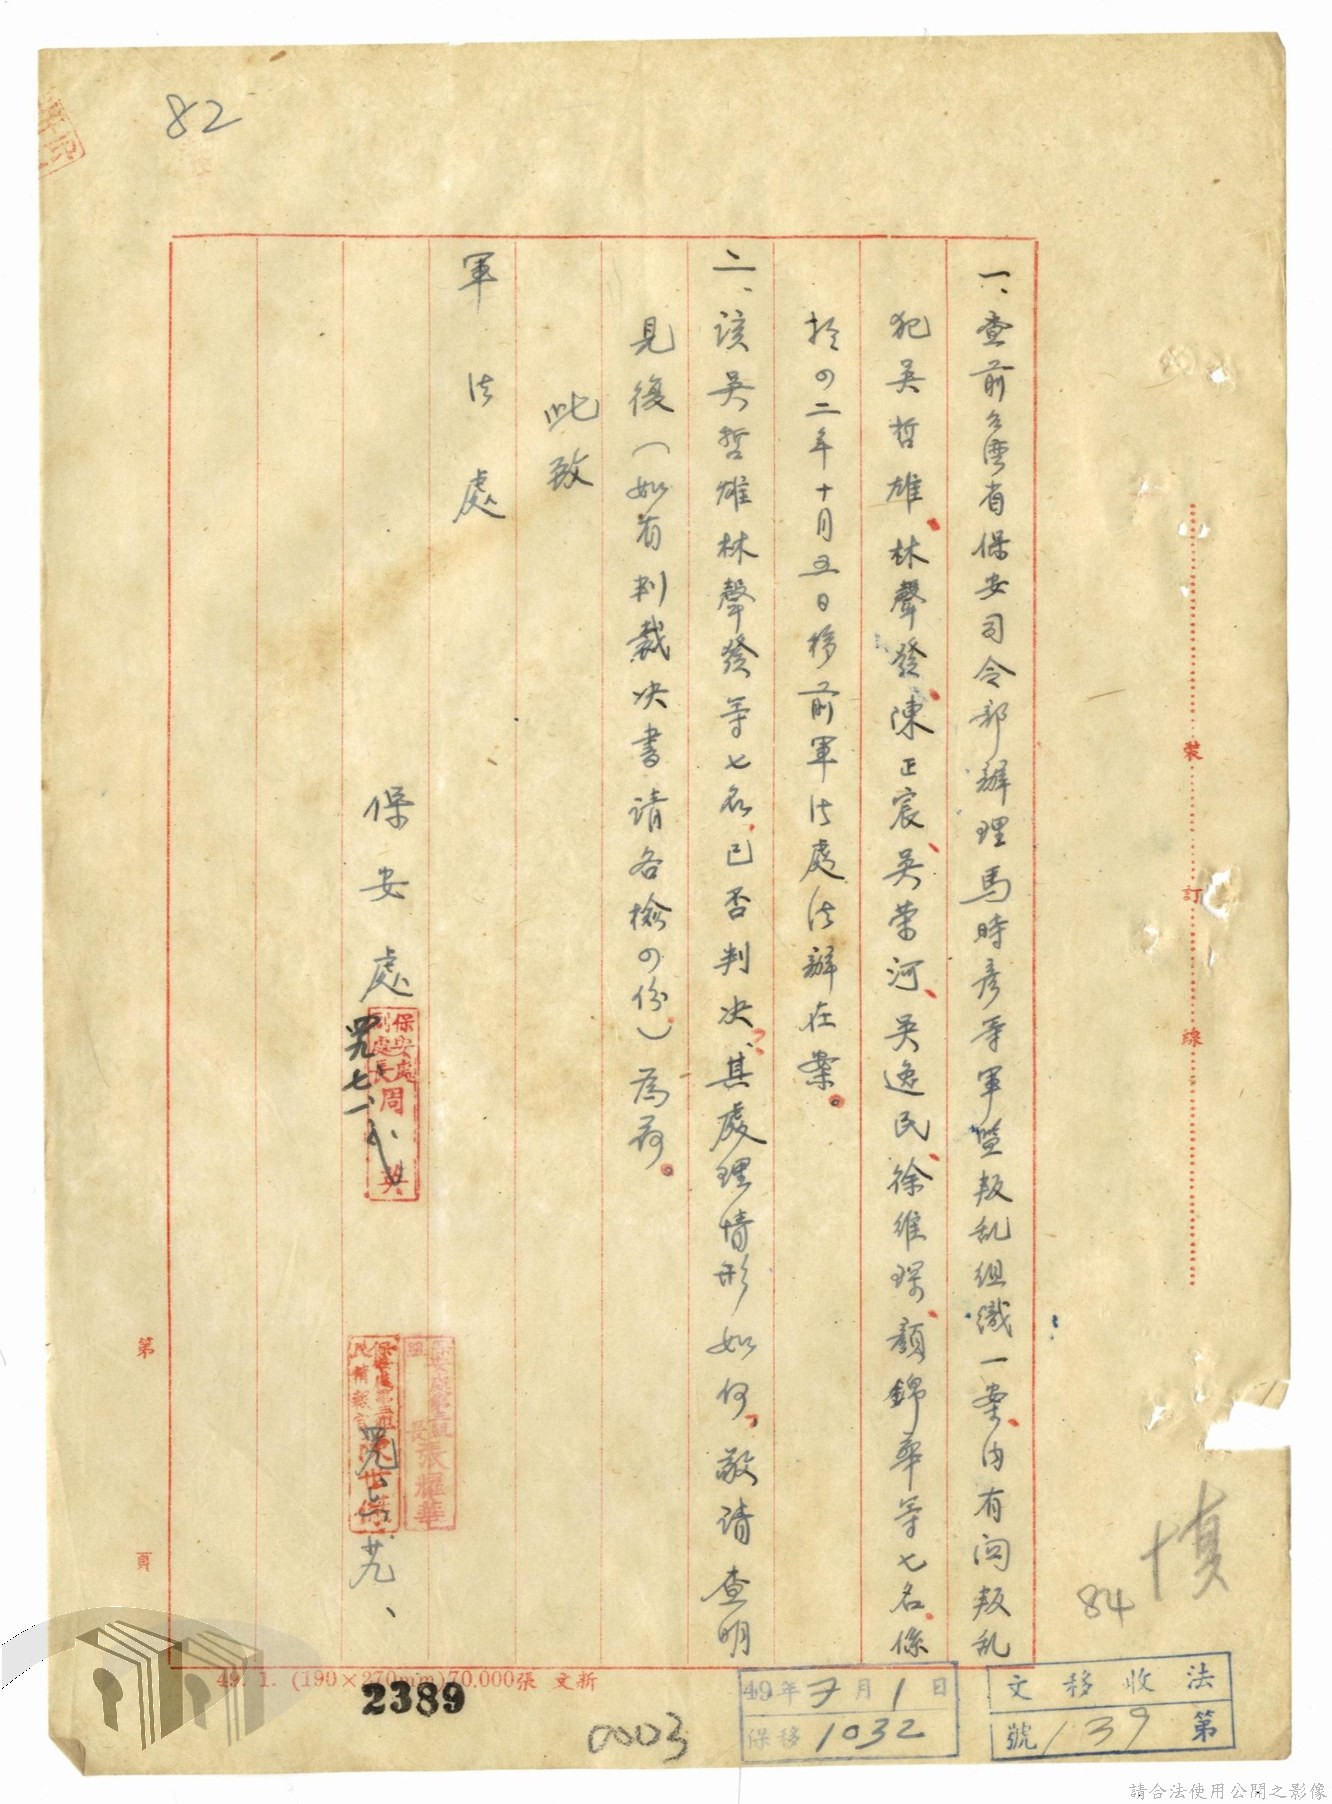 82
一、查前台湾省保安司令部辦理馬時彥等軍監叛乱组織一案、内有関叛乱
犯吳哲雄、林聲發、陳正宸、吳荣河、吳逸民、徐维琛、顏錦華等七名、係
於四二年十月五日移前軍法處法辦在案。
二、該吳哲雄林聲發等七名、已否判决、其處理情形如何、敬请查明
見復（如有判裁决書请各檢四份）為荷。
此致
軍法處
保安處
保安處
副處長周 英
四九七一
保安處第
組
長張耀華
世傑
裝訂線
第
頁
49. 1. (190×270mm)70.000張 文新
2389
0003
49年7月1日
保移1032
法收移文
第139號
84
請合法使用公開之影像